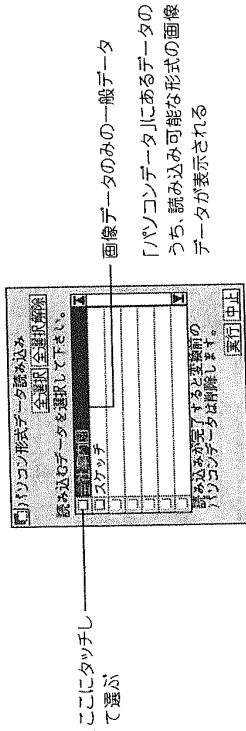 パソコン形式データ読み込み
全選択 全選択解除
読み込むデータを選択して下さい。
スケッチ
読み込みが完了すると変換前の
パソコンデータは削除します。
実行 中止
ここにタッチし
て選ぶ
画像データのみの一般データ
「パソコンデータ」にあるデータの
うち、読み込み可能な形式の画像
データが表示される